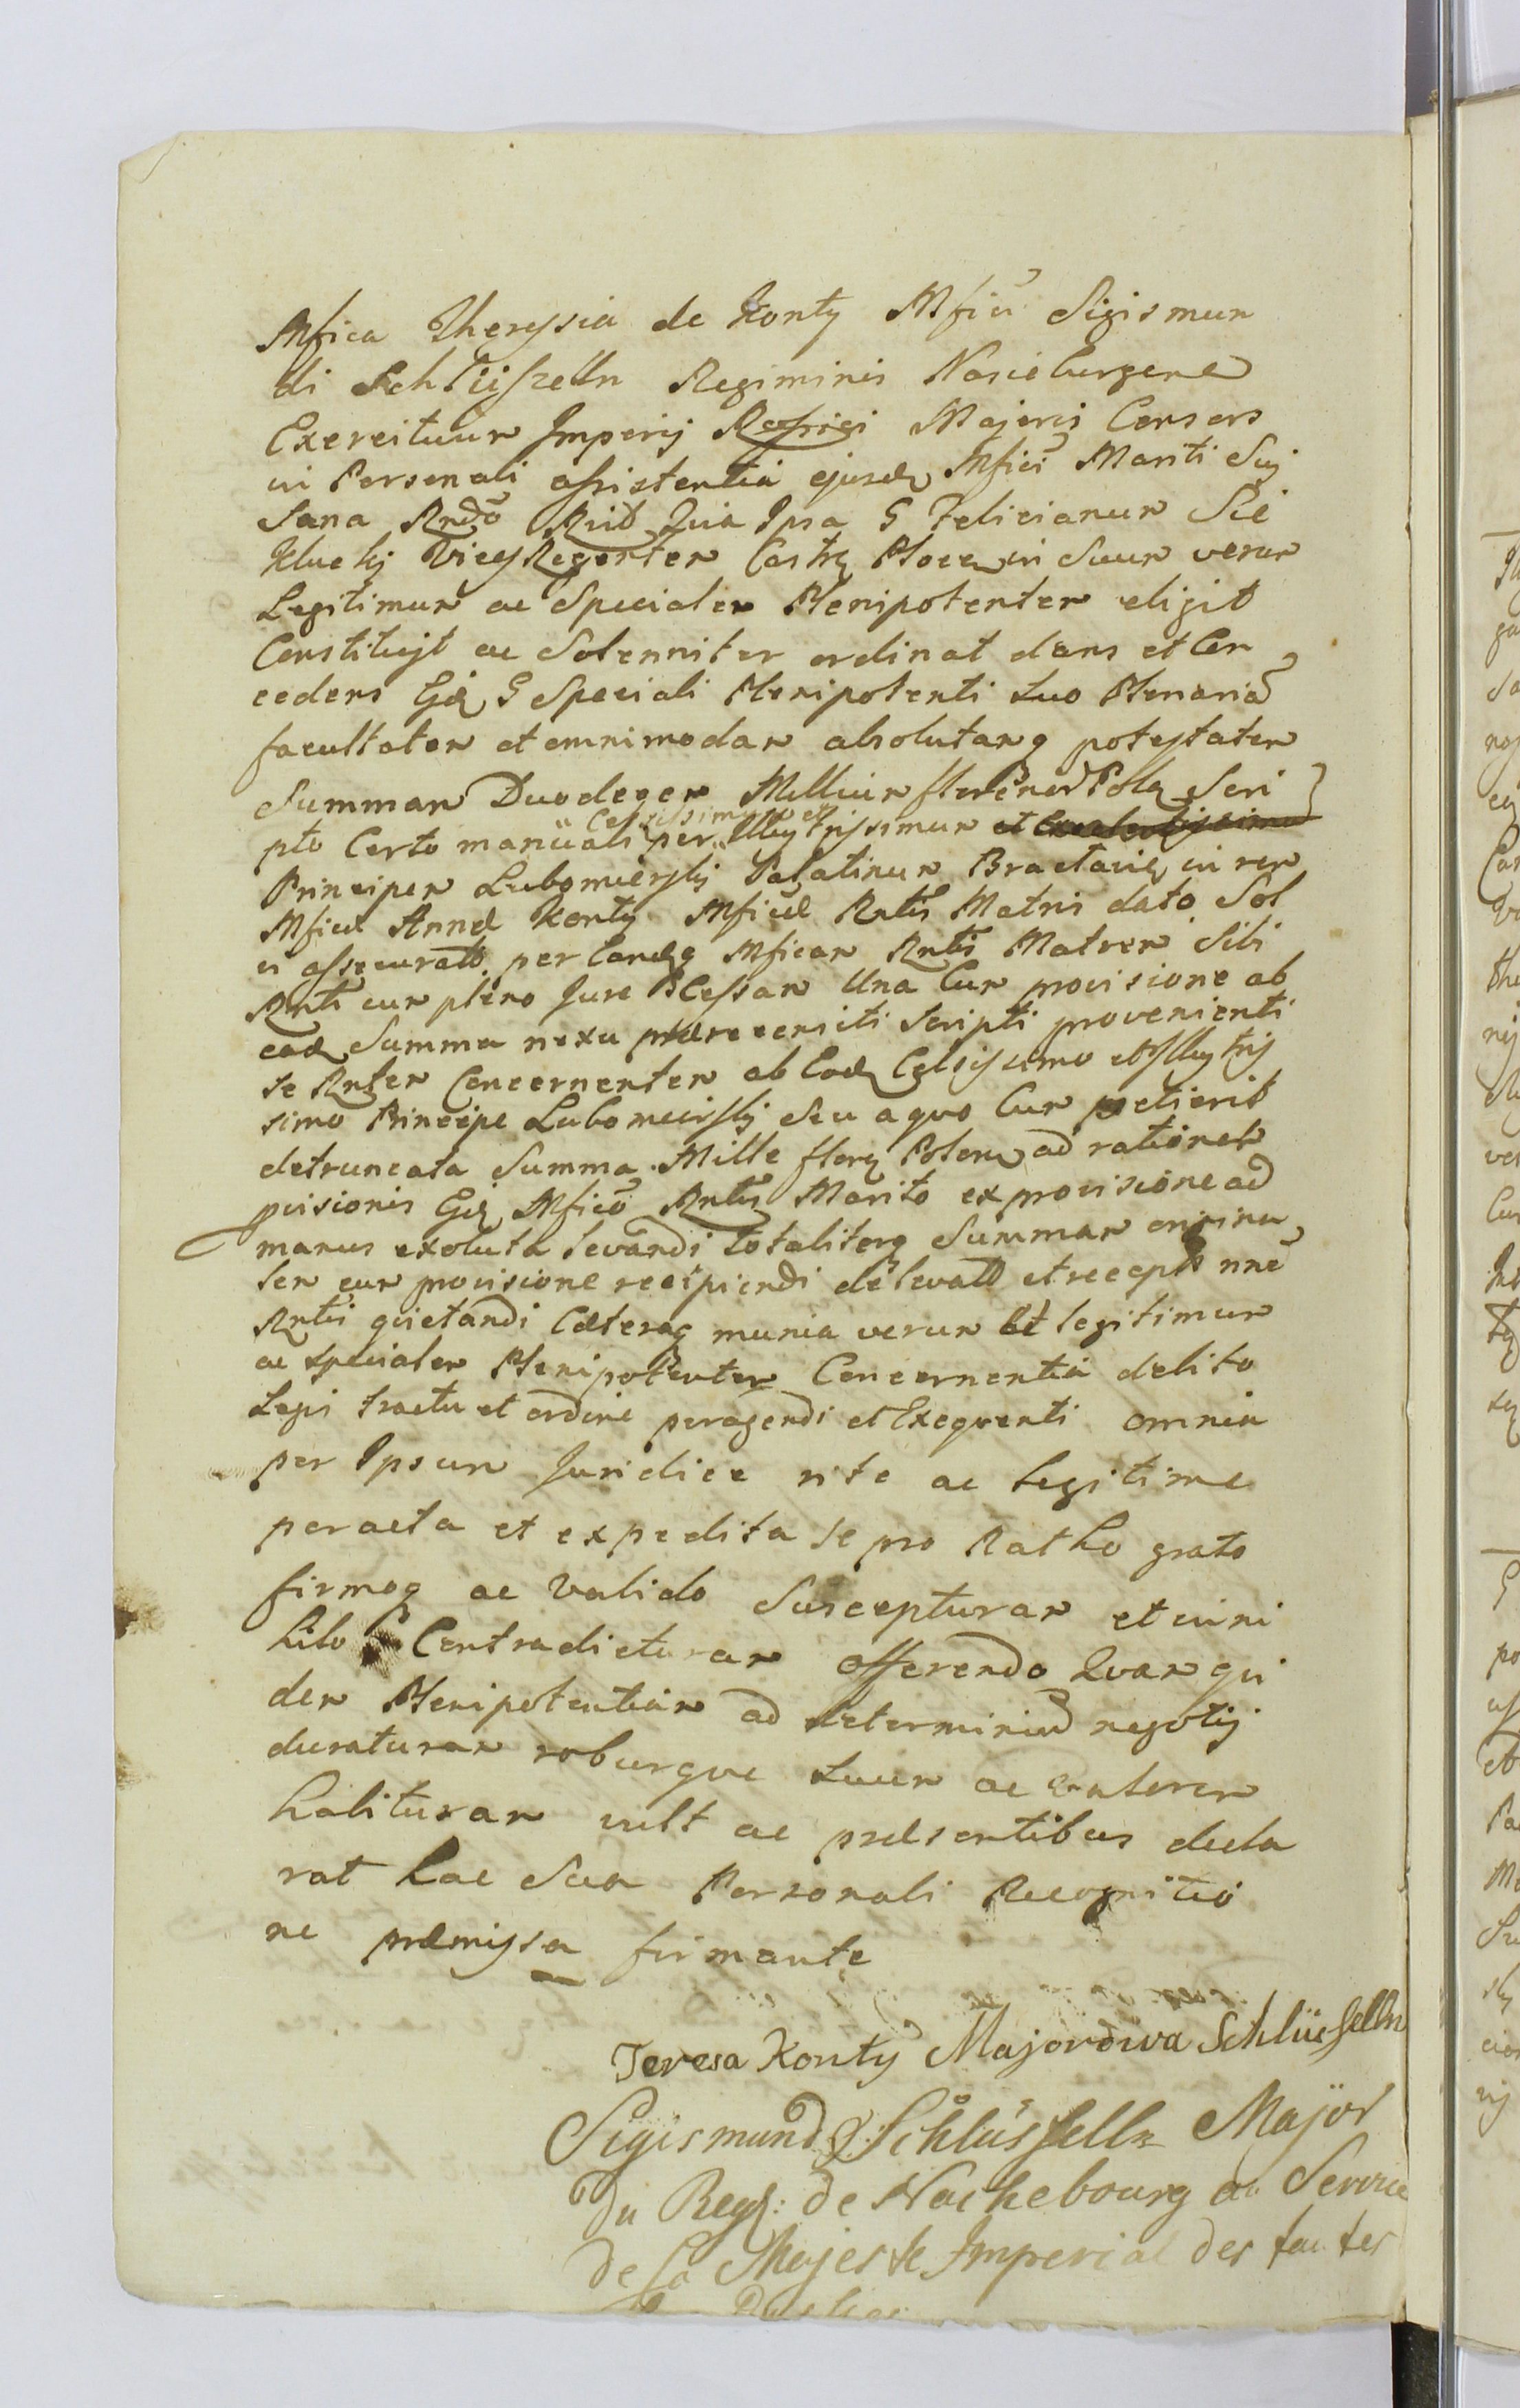 Mfica Theressia de Konty Mfici Sigismun
di Schlüszelln Regiminis Nasceburgens
Exercituum Imperij Majoris Consors
in Personali assistentia ejusd Mfici Mariti Sui
Sana Rndo Quia Ipsa G Felicianum Sie
kluckj ViceRegentem Castr Plocen in Suum verum
Legitimum ac Specialem Plenipotentem eligit
Constituit ac Solenniter ordinat dans et Con
cedens G Speciali Plenipotenti suo Plenariã
facultatem et omnimodam absolutamq potestatem
Summam Duodecem Millium floren Pol Scri
pto Certo manuali per Celsissimum et Illustrissimum
Principem Lubomierskj Palatinum Braclavie in rem
Mficæ Annæ Konty Mficæ Rntis Matris dato Sol
vi assecurat per Eandq Mficam Rntis Matrem Sibi
Rnti cum pleno Jure Cessam Una Cum provisione ab
ead Summa nexu prærecensiti Scripti provenienti
se Rntem Concernentem ab Eod Celsissimo et Illustris
simo Principe Lubomierskj seu a quo Cum petierit
detruncata Summa Mille flor Polon ad rationem
pvisionis Mfico Rntis Marito ex provisione ad
manus exoluta levandi totaliterq Summam origina
lem cum provisione recipiendi de levato et recepto nne
Rntis quietandi Cæteraq munia verum et legitimum
ac specialem Plenipotentem Concernentia debito
Legis tractu et ordine peragendi et Exequenti omnia
per Ipsum Juridice rite ac legitime
peracta et expedita se pro Ratho grato
firmoq ac valido Suscepturam et in ni
hilo Contradicturam offerendo Quam qui
dem Plenipotentiam ad determinium negotij
duraturam roburque suum ac valorem
habituram vult ac præsentibus decla
rat hac Sua Personali Recognitio
ne præmissa firmante
Teresa Konty Majorowa Schlüsselln
Sigismund Schlüsselln Major
Du Reg: de Nachebourg au Service
de Sa Majeste Imperial des toutes